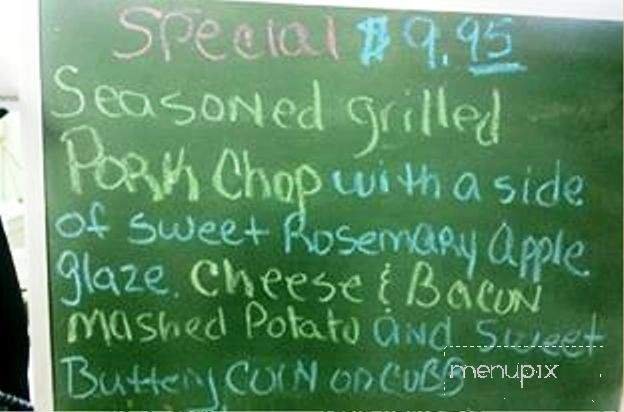 Special $9.95
Seasoned grilled
Pork Chop with a side
of sweet Rosemary Apple
glaze. Cheese & Bacon
Mashed Potato and Sweet
Buttery Corn on CoBB
menupix